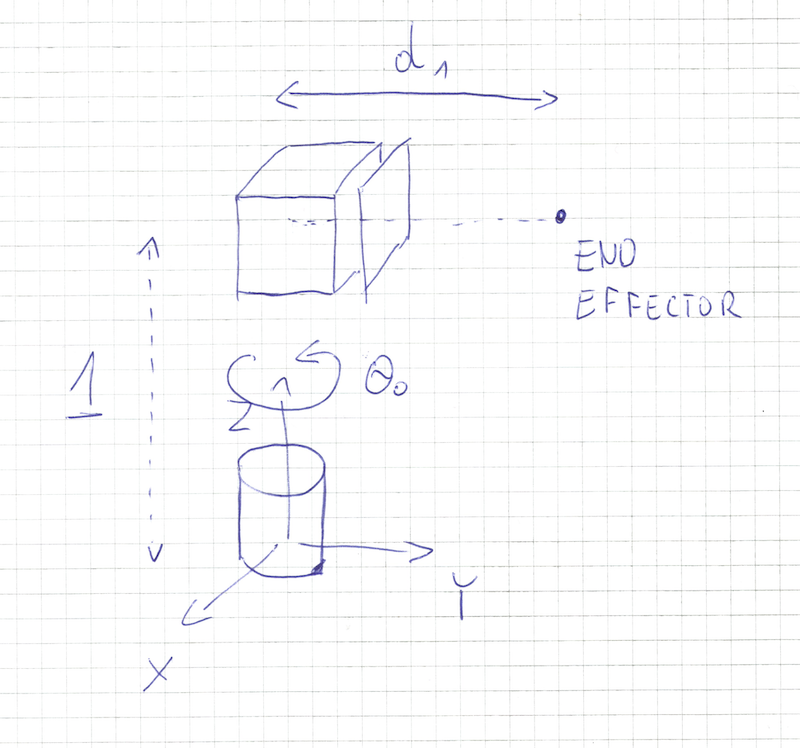 d₁
END
EFFECTOR
1
θ₀
Z
Y
X